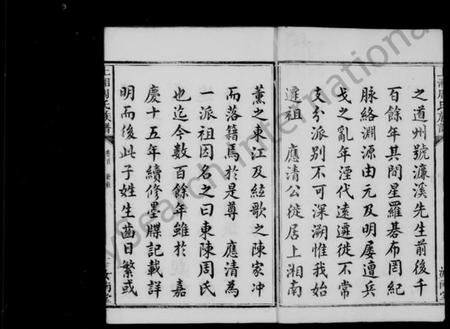 之道州號濂溪先生前後千
百餘年其間星羅碁布罔紀
脉絡淵源由元及明屢遭兵
戈之亂年湮代遠遷徙不常
支分派別不可深溯惟我始
遷祖　應清公徙居上湘南
薰之東江及絃歌之陳家冲
而落籍焉於是尊　應清為
一派祖因名之曰東陳周氏
也迄今數百餘年雖於　嘉
慶十五年續修墨牒記載詳
明而後此子姓生齒日繁或
上湘周氏族譜
汝南堂